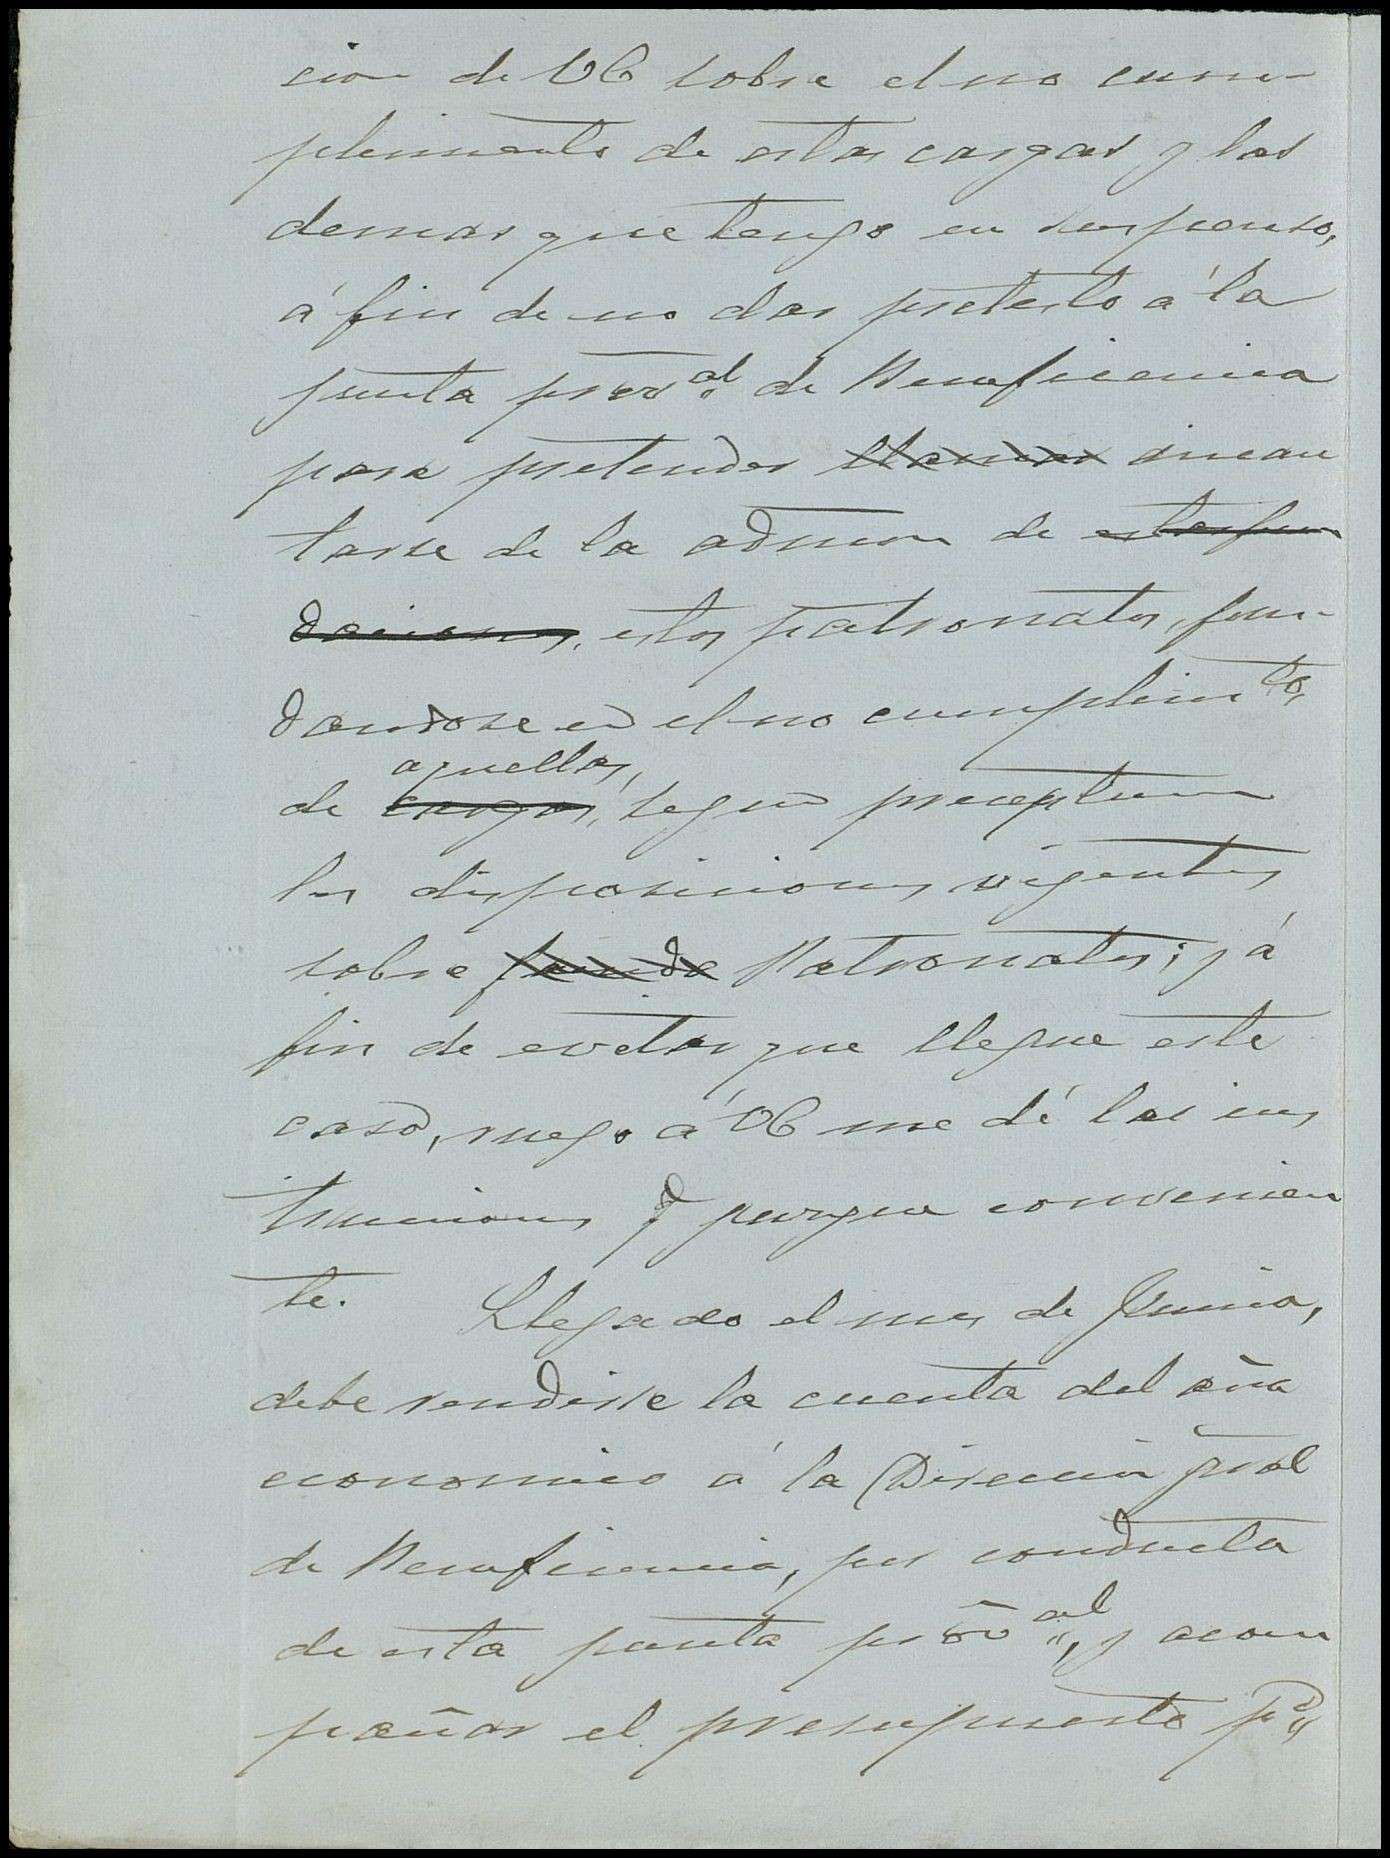 cion de VE sobre el no cum-
plimiento de estas cargas y las
demas que tengo en suspenso,
á fin de no dar pretesto á la
junta prov.al de Beneficencia
para pretender llamar incau
tarse de la admon de estas fun
daciones, estos patronatos, fun-
dandose en el no cumplim.to,
aquellas,
de cargas, segun preceptuan
las disposiciones vigentes
sobre funda Patronatos; y á
fin de evitar que llegue este
caso, ruego á VE me dé las ins
trucciones q juzgue convenien
te. Llegado el mes de Junio,
debe rendirse la cuenta del año
economico á la Direccion gral
de Beneficencia, por conducto
de esta junta prov.al, y acom
pañar el presupuesto p.a